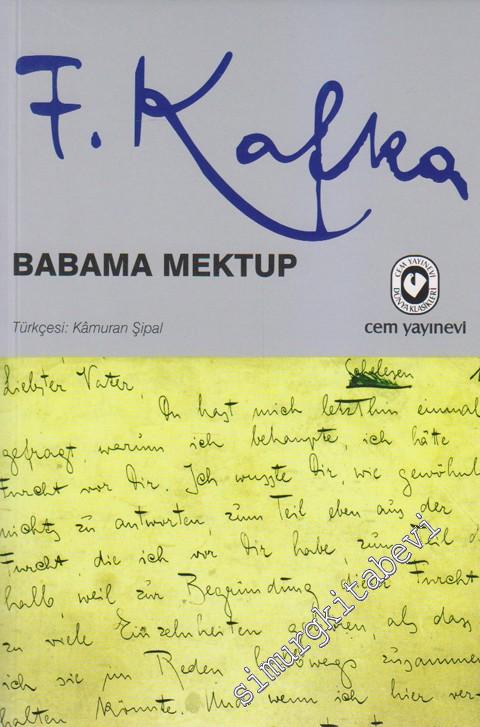 F. Kafka
BABAMA MEKTUP
CEM YAYINEVİ
DÜNYA KLASİKLERİ
Türkçesi: Kâmuran Şipal
cem yayınevi
Schelesen
Liebster Vater,
Du hast mich letzthin einmal
gefragt, warum ich behaupte, ich hätte
Furcht vor Dir. Ich wusste Dir, wie gewöhnl
nichts zu antworten, zum Teil eben aus der
Furcht, die ich vor Dir habe, zum Teil d
halb, weil zur Begründung der Furcht
zu viele Einzelheiten gehören, als dass
ich sie im Reden halbwegs zusammen
halten könnte. Und wenn ich hier ver-
simurgkitabevi